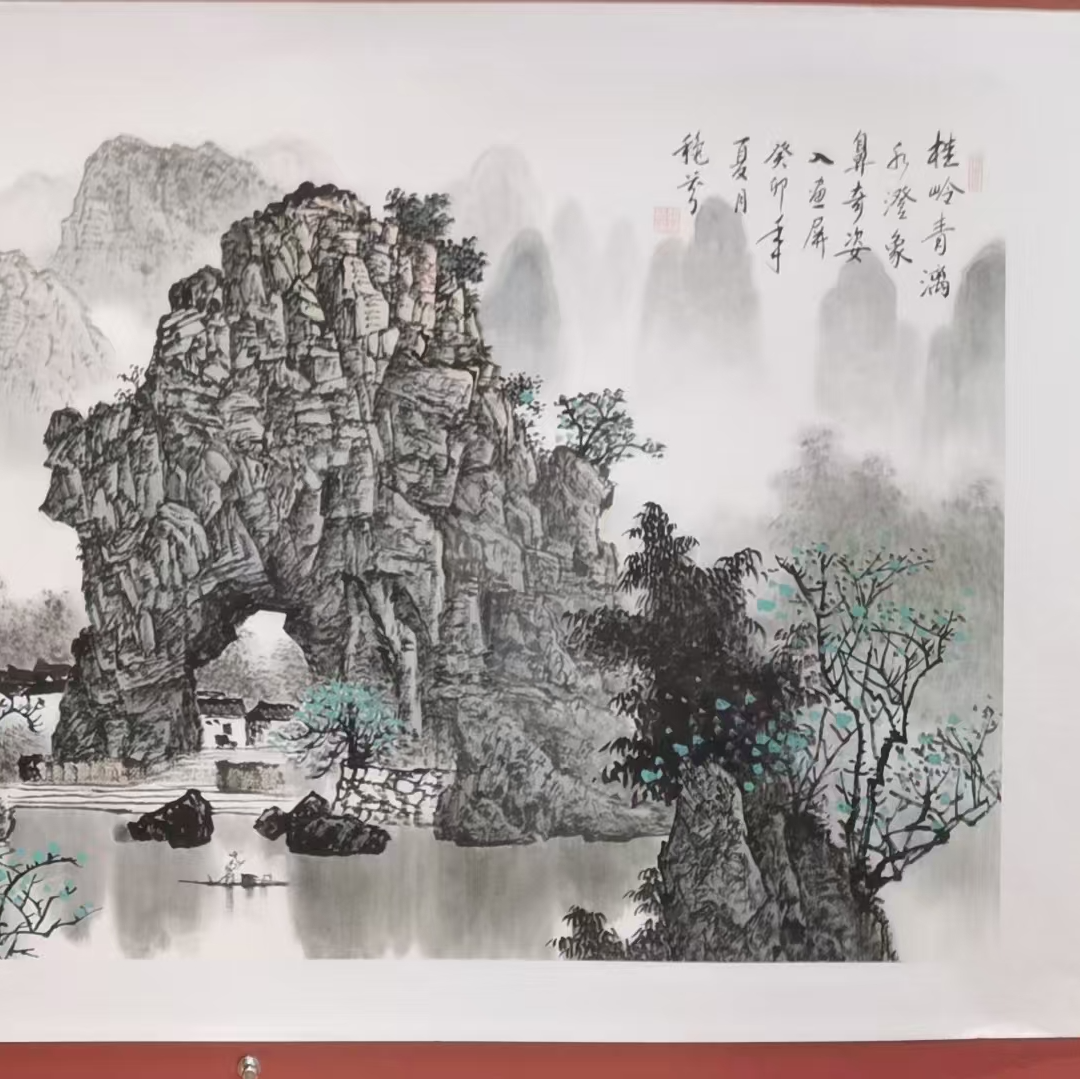 桂岭青漓
水澄象
鼻奇姿
入画屏
癸卯年
夏月
艳芬